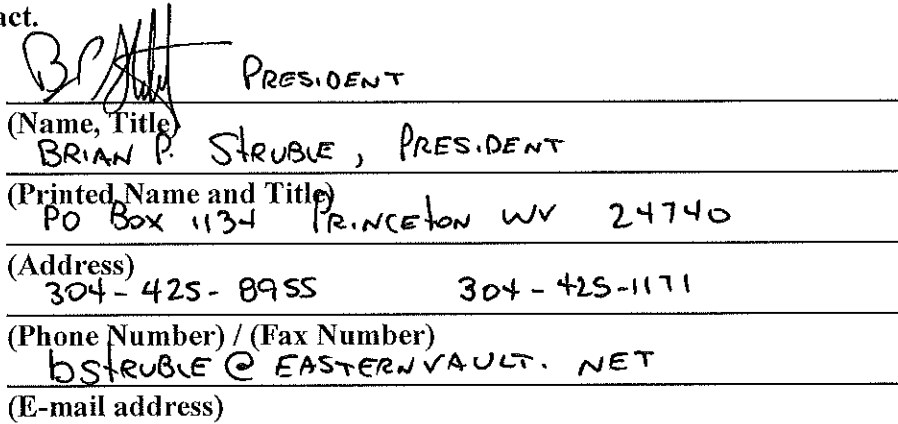 act.
PRESIDENT
(Name, Title)
BRIAN P. STRUBLE, PRESIDENT
(Printed Name and Title)
PO Box 1134 PRINCETON WV 24740
(Address)
304-425-8955 304-425-1171
(Phone Number) / (Fax Number)
bSTRUBLE @ EASTERNVAULT. NET
(E-mail address)